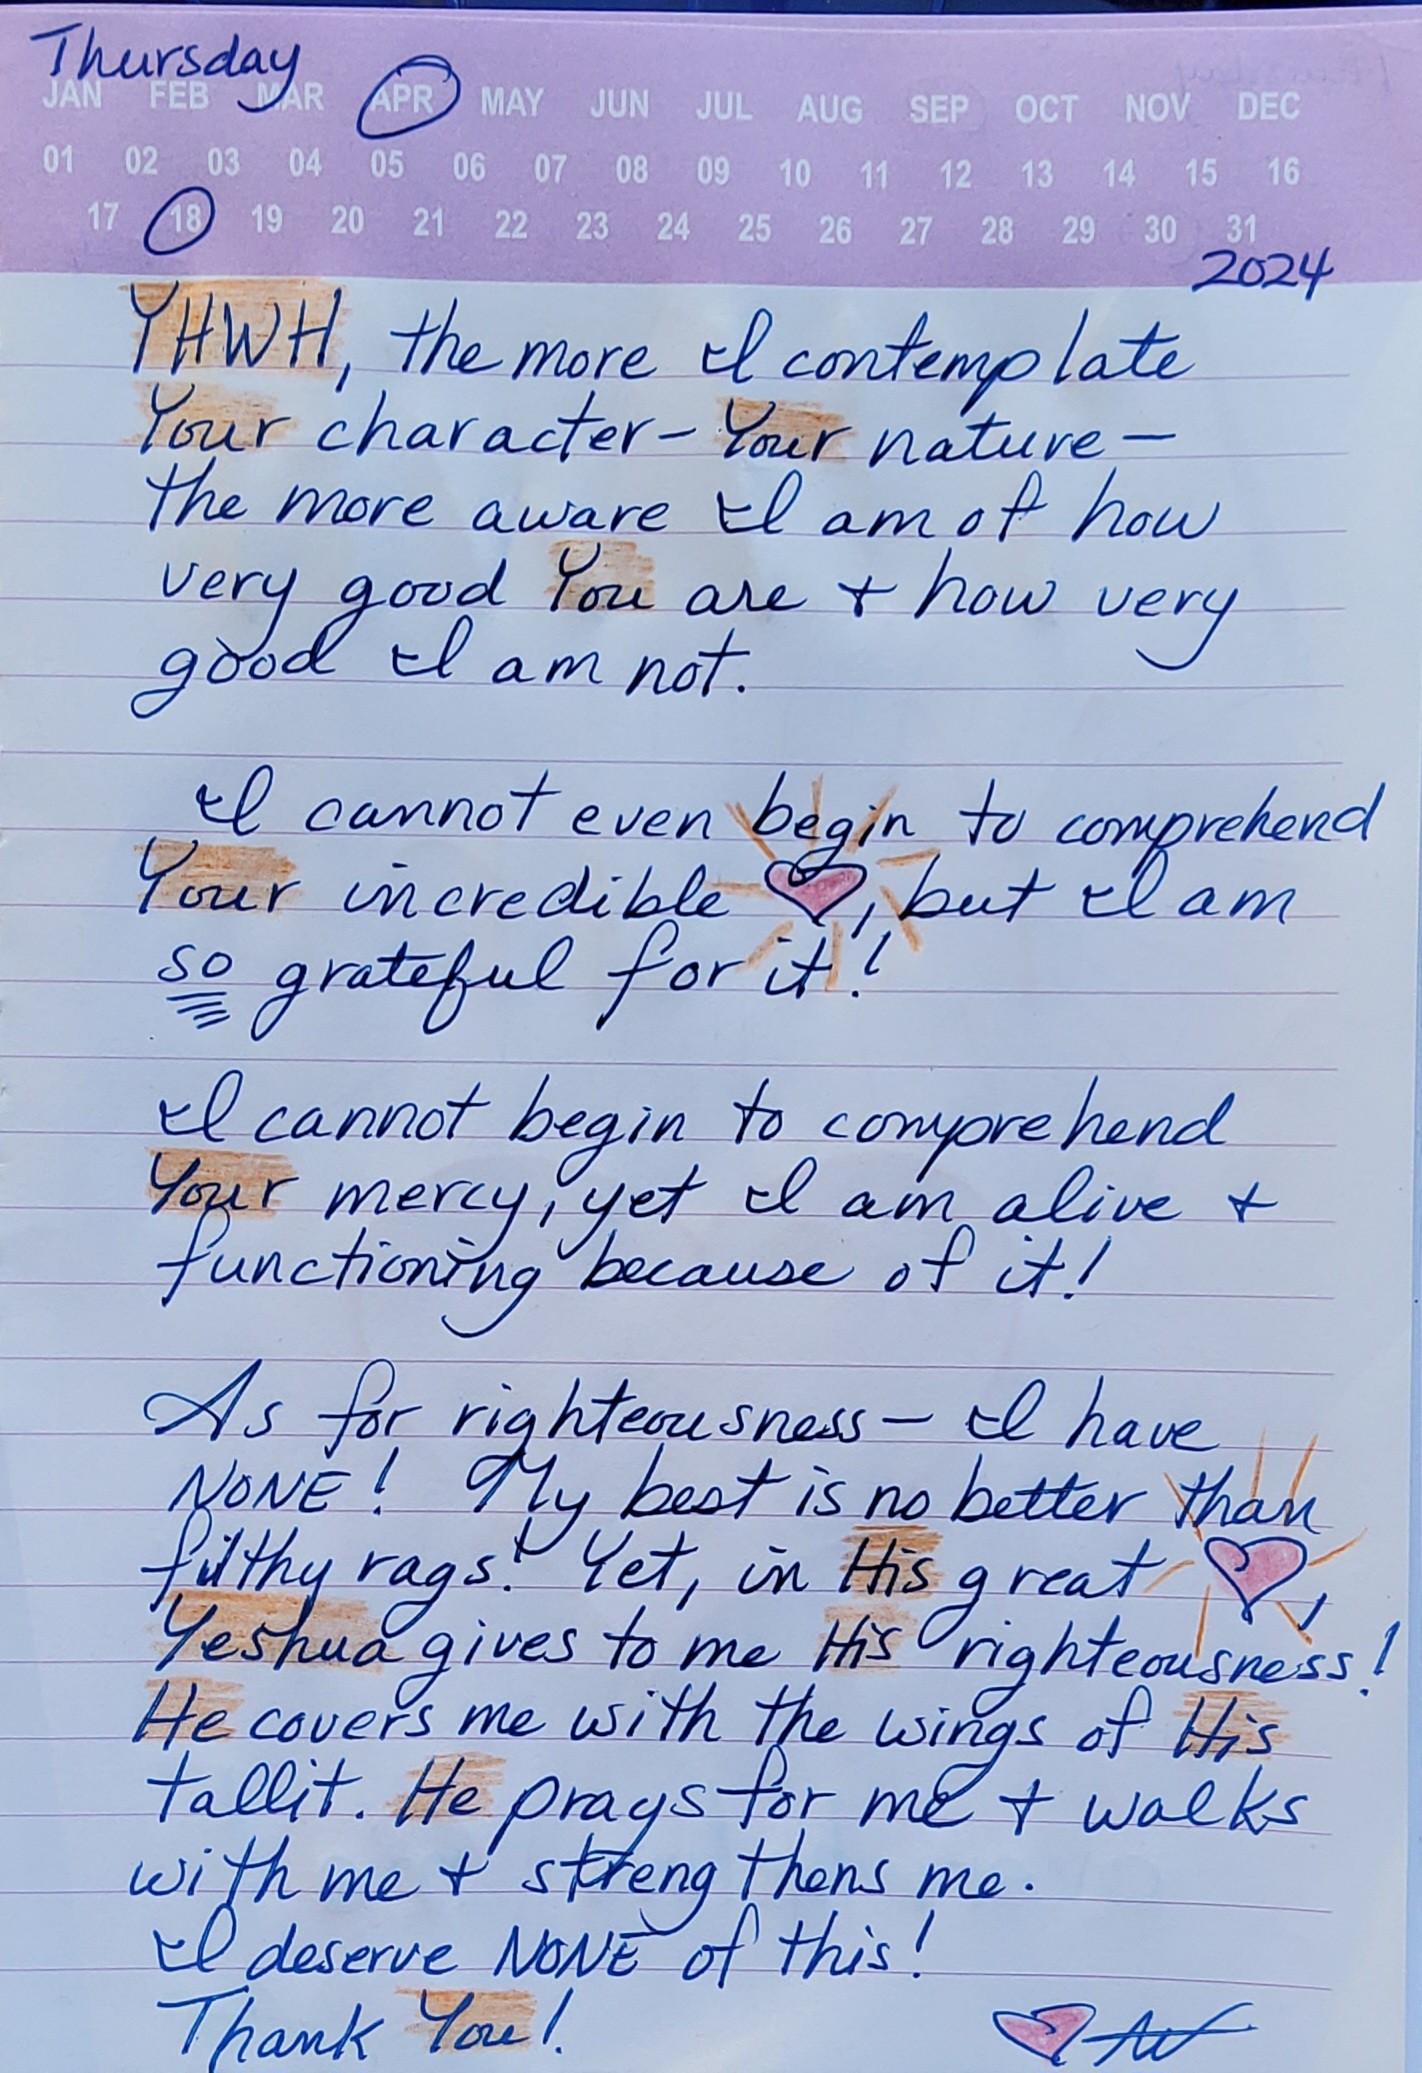 Thursday
JAN FEB MAR APR MAY JUN JUL AUG SEP OCT NOV DEC
01 02 03 04 05 06 07 08 09 10 11 12 13 14 15 16
17 18 19 20 21 22 23 24 25 26 27 28 29 30 31
2024
YHWH, the more I contemplate
Your character - Your nature -
the more aware I am of how
very good You are + how very
good I am not.
I cannot even begin to comprehend
Your incredible ♥, but I am
so grateful for it!
I cannot begin to comprehend
Your mercy, yet I am alive +
functioning because of it!
As for righteousness - I have
NONE! My best is no better than
filthy rags! Yet, in His great ♥,
Yeshua gives to me His righteousness!
He covers me with the wings of His
tallit. He prays for me + walks
with me + strengthens me.
I deserve NONE of this!
Thank You!